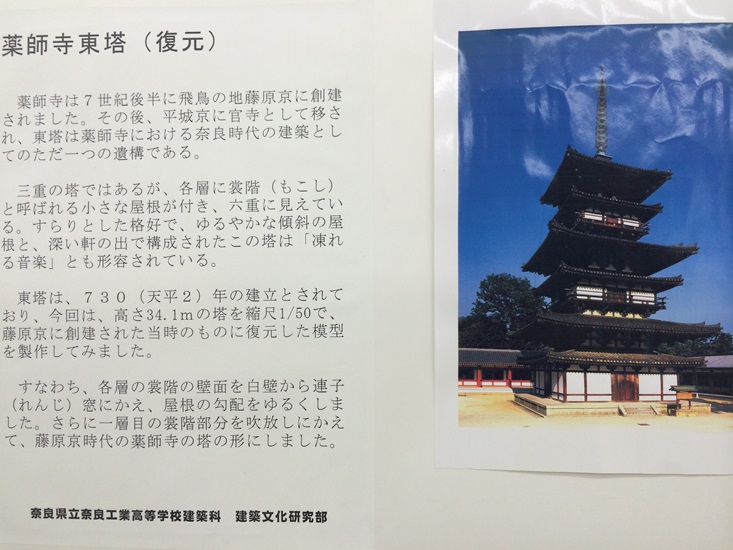 薬師寺東塔（復元）
薬師寺は７世紀後半に飛鳥の地藤原京に創建
されました。その後、平城京に官寺として移さ
れ、東塔は薬師寺における奈良時代の建築とし
てのただ一つの遺構である。
三重の塔ではあるが、各層に裳階（もこし）
と呼ばれる小さな屋根が付き、六重に見えてい
る。すらりとした格好で、ゆるやかな傾斜の屋
根と、深い軒の出で構成されたこの塔は「凍れ
る音楽」とも形容されている。
東塔は、７３０（天平２）年の建立とされて
おり、今回は、高さ34.1ｍの塔を縮尺1/50で、
藤原京に創建された当時のものに復元した模型
を製作してみました。
すなわち、各層の裳階の壁面を白壁から連子
（れんじ）窓にかえ、屋根の勾配をゆるくしま
した。さらに一層目の裳階部分を吹放しにかえ
て、藤原京時代の薬師寺の塔の形にしました。
奈良県立奈良工業高等学校建築科　建築文化研究部